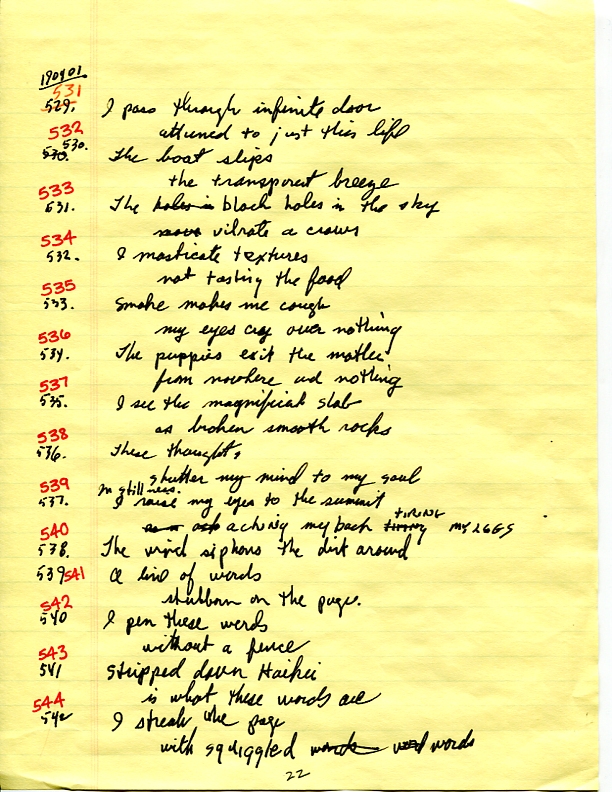 190401
531
529. I pass through infinite door
532 attuned to just this life
530. 530. The boat slips
the transparent breeze
533
531. The holes in black holes in the sky
534 vibrate a crows
532. I masticate textures
535 not tasting the food
533. Smoke makes me cough
536 my eyes cry over nothing
534. The puppies exit the mother
537 from nowhere and nothing
535. I see the magnificent slab
538 as broken smooth rocks
536. These thoughts
539 shutter my mind to my soul
in stillness.
537. I raise my eyes to the summit
TIRING
540 aching my back tiring MY LEGS
538. The wind siphons the dirt around
539 541 A line of words
542 stubborn on the page.
540 I pen these words
543 without a fence
541 Stripped down Haikei
544 is what these words are
542 I streak the page
with squiggled words words
22